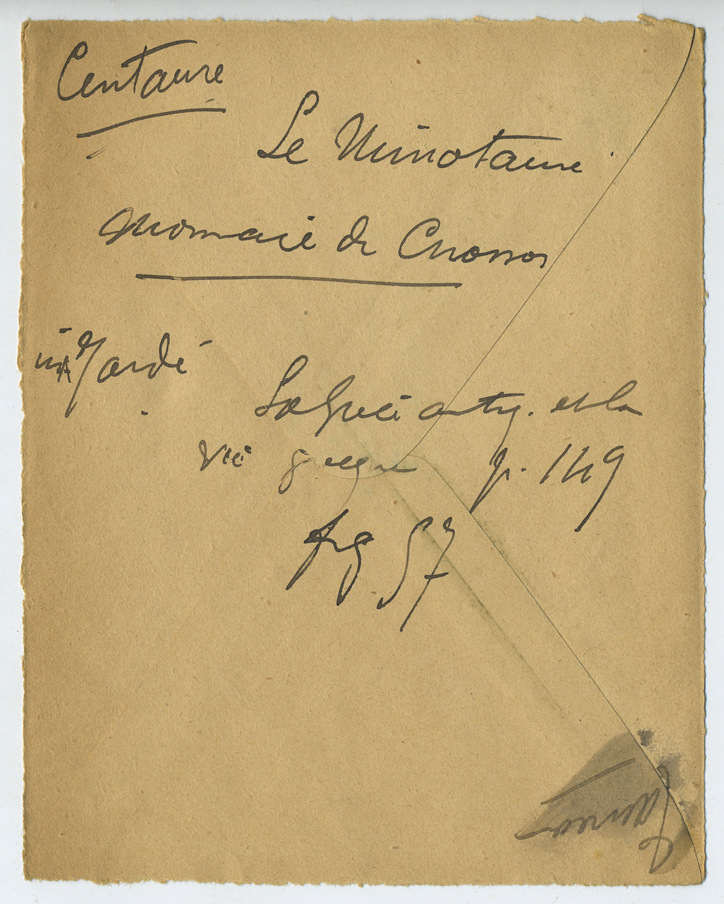 Centaure
Le Minotaure
Monnaie de Cnossos
in Jardé
La Grèce antiq. et la
Vie grecque p. 149
fig 57